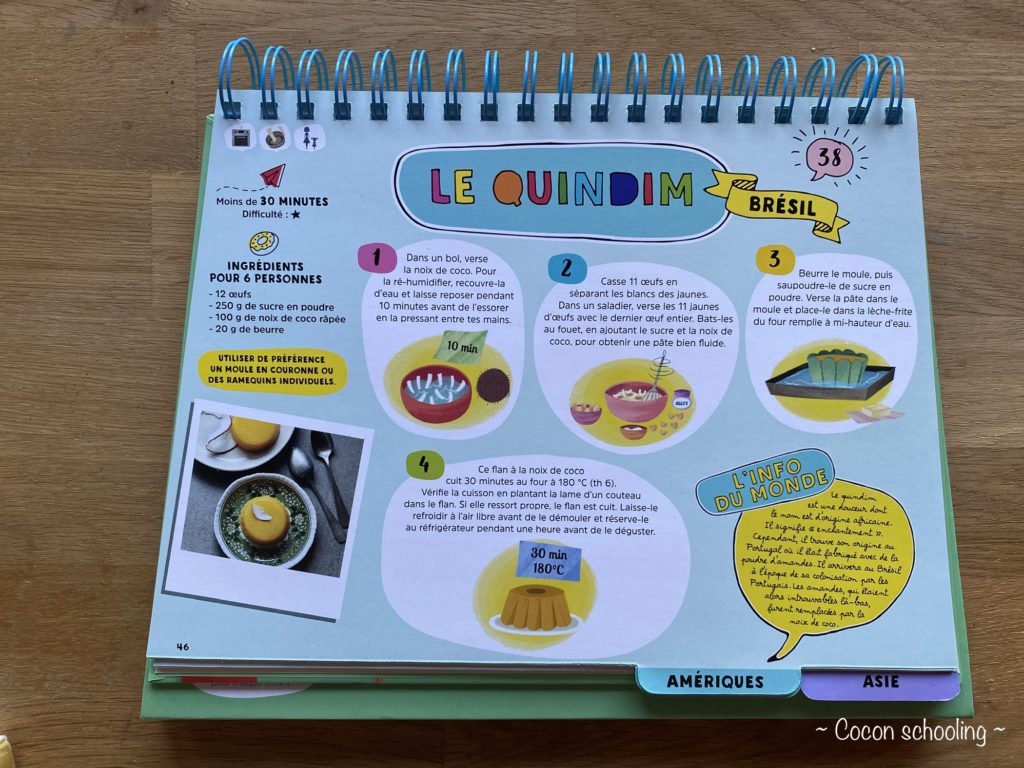 LE QUINDIM
BRÉSIL
38
Moins de 30 MINUTES
Difficulté : ★
INGRÉDIENTS
POUR 6 PERSONNES
- 12 œufs
- 250 g de sucre en poudre
- 100 g de noix de coco râpée
- 20 g de beurre
UTILISER DE PRÉFÉRENCE
UN MOULE EN COURONNE OU
DES RAMEQUINS INDIVIDUELS.
1
Dans un bol, verse
la noix de coco. Pour
la ré-humidifier, recouvre-la
d'eau et laisse reposer pendant
10 minutes avant de l'essorer
en la pressant entre tes mains.
10 min
2
Casse 11 œufs en
séparant les blancs des jaunes.
Dans un saladier, verse les 11 jaunes
d'œufs avec le dernier œuf entier. Bats-les
au fouet, en ajoutant le sucre et la noix de
coco, pour obtenir une pâte bien fluide.
SUCRE
3
Beurre le moule, puis
saupoudre-le de sucre en
poudre. Verse la pâte dans le
moule et place-le dans la lèche-frite
du four remplie à mi-hauteur d'eau.
4
Ce flan à la noix de coco
cuit 30 minutes au four à 180 °C (th 6).
Vérifie la cuisson en plantant la lame d'un couteau
dans le flan. Si elle ressort propre, le flan est cuit. Laisse-le
refroidir à l'air libre avant de le démouler et réserve-le
au réfrigérateur pendant une heure avant de le déguster.
30 min
180°C
L'INFO
DU MONDE
Le quindim
est une douceur dont
le nom est d'origine africaine.
Il signifie « enchantement ».
Cependant, il trouve son origine au
Portugal où il était fabriqué avec de la
poudre d'amandes. Il arrivera au Brésil
à l'époque de sa colonisation par les
Portugais. Les amandes, qui étaient
alors introuvables là-bas,
furent remplacées par la
noix de coco.
46
AMÉRIQUES
ASIE
~ Cocon schooling ~